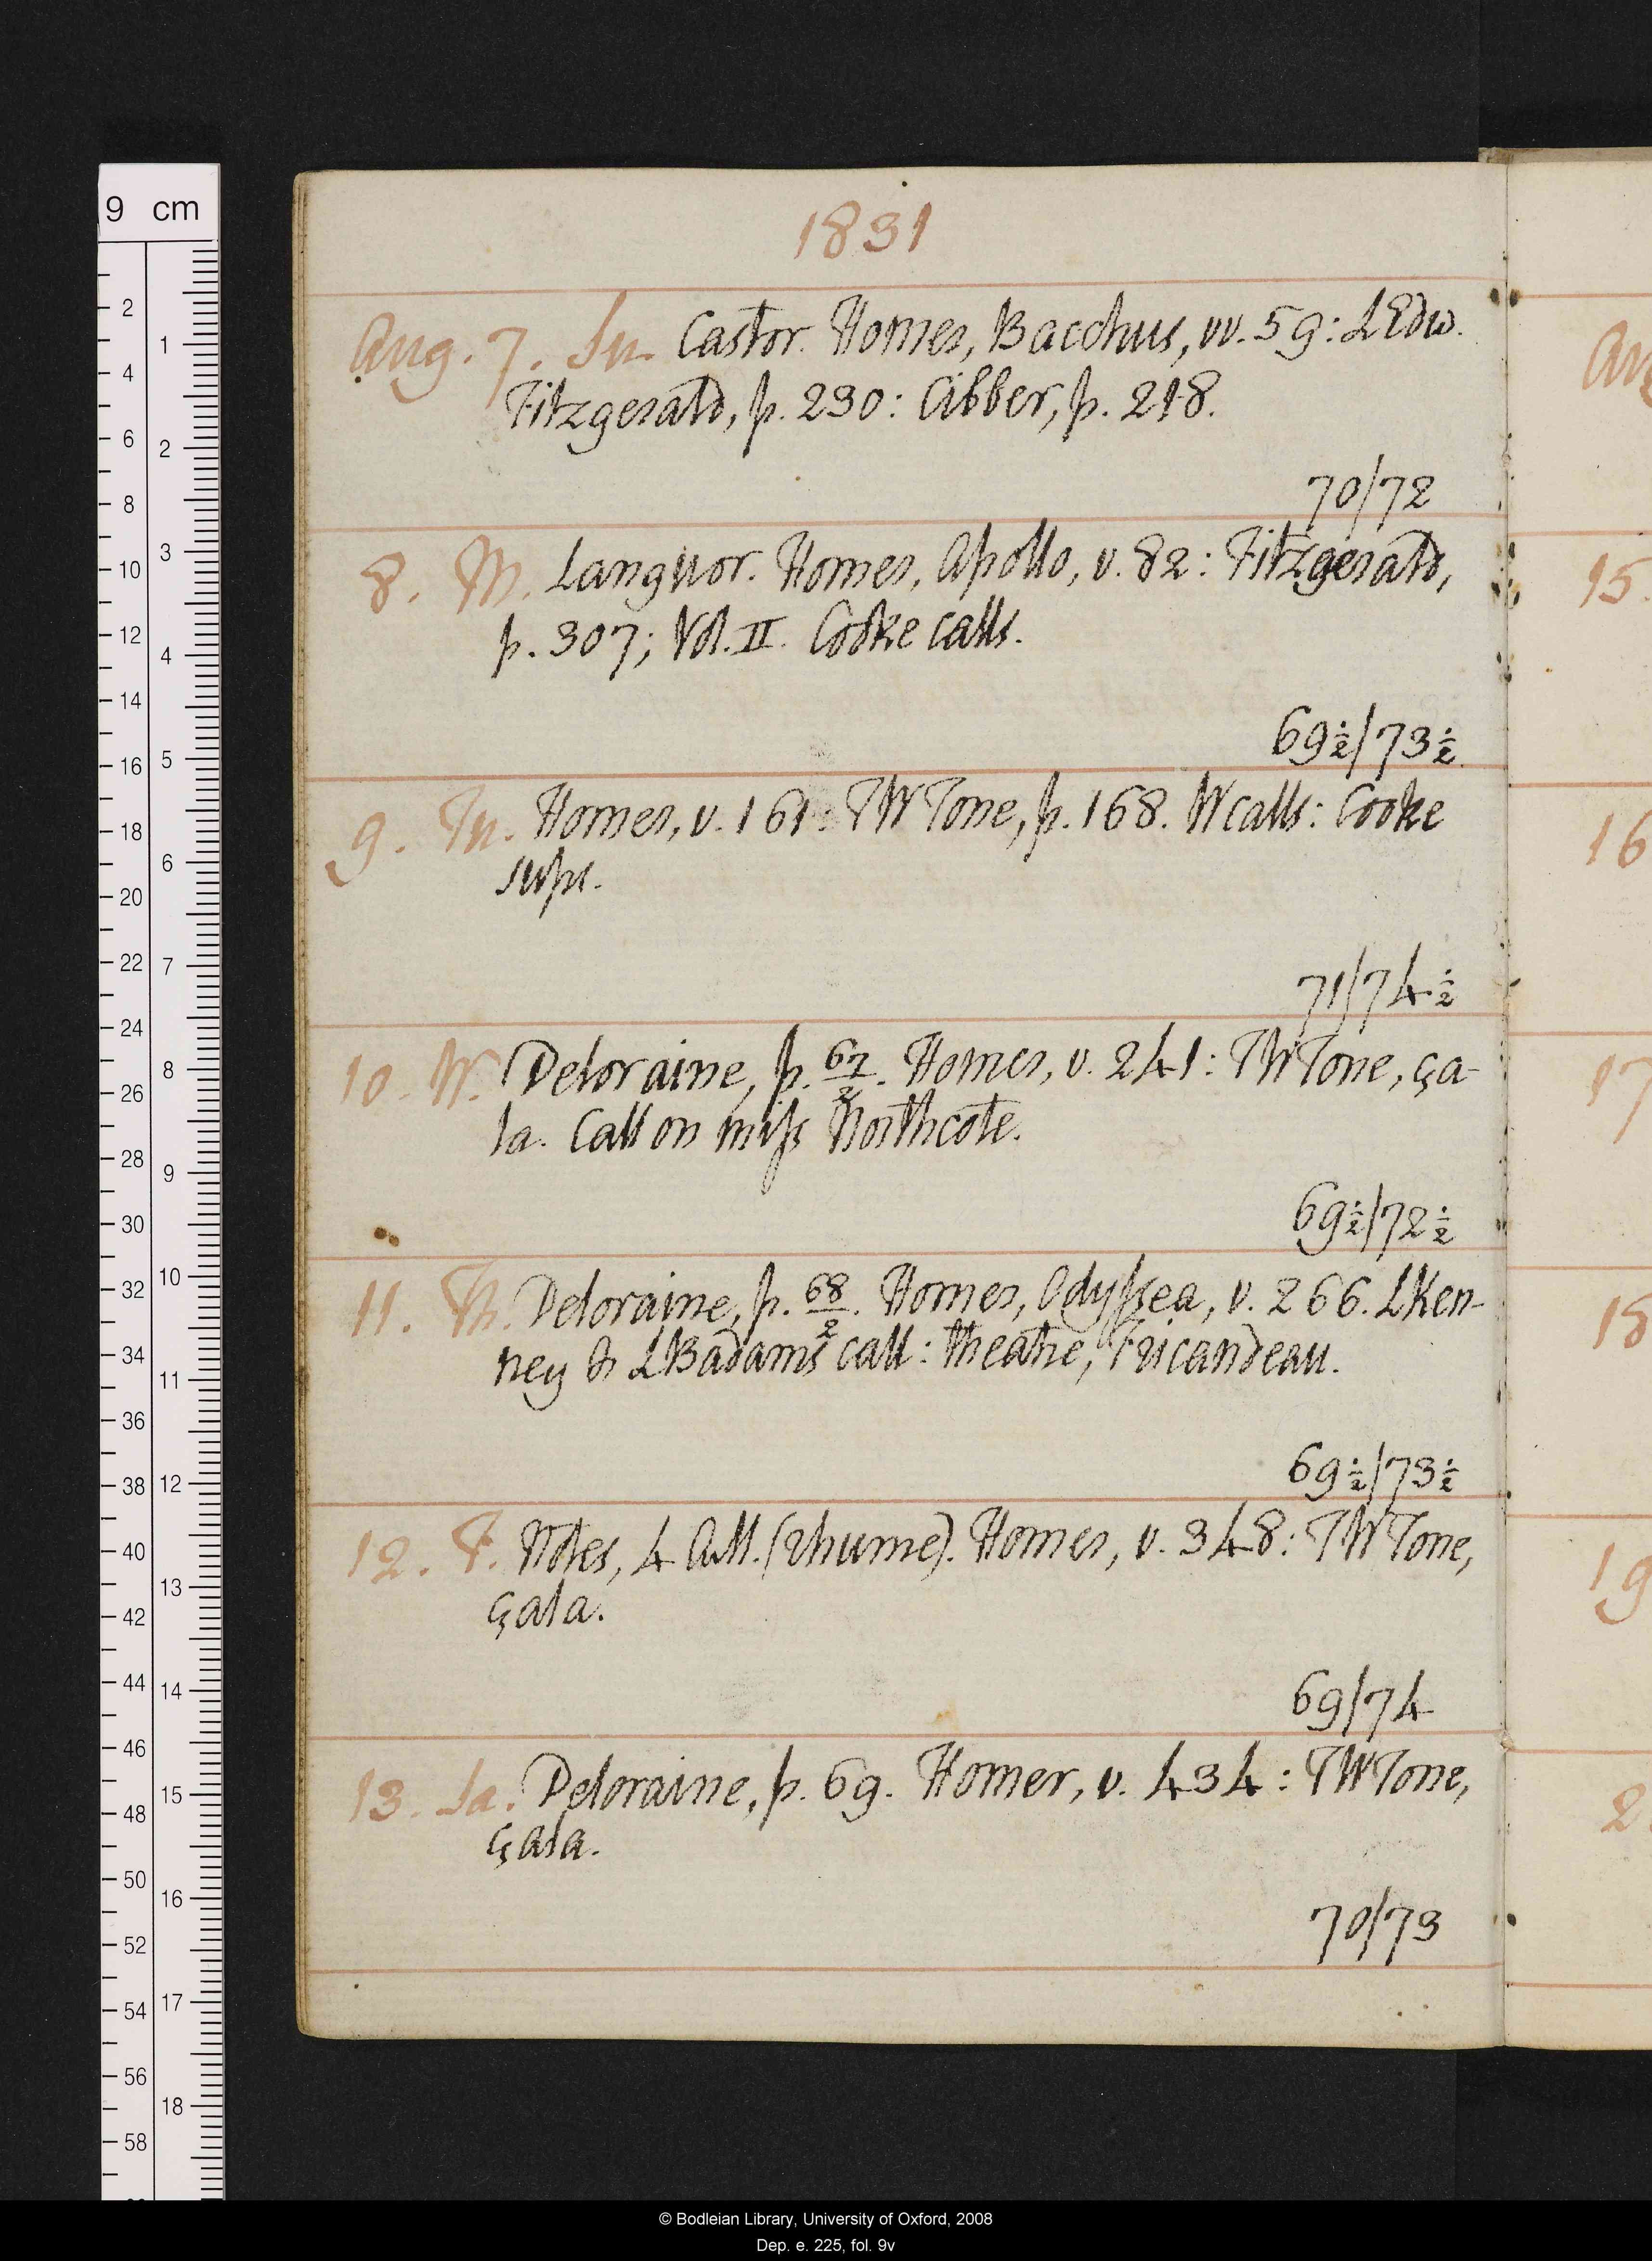 9 cm
1831
Aug. 7. Su. Castor. Homer, Bacchus, vv. 59: L Edw.
Fitzgerald, p. 230: Cibber, p. 218.
70/72
8. M. Languor. Homer, Apollo, v. 82: Fitzgerald,
p. 307; Vol. II. Cooke calls.
69½/73½
9. Tu. Homer, v. 161: TW Tone, p. 168. W calls: Cooke
sups.
71/74½
10. W. Deloraine, p. 67/2. Homer, v. 241: TW Tone, ça-
la. Call on miss Northcote.
69½/72½
11. Th. Deloraine, p. 68/2. Homer, Odyssea, v. 266. L Ken-
ney & L Badams call: theatre, Fricandeau.
69½/73½
12. F. Notes, 4 AM. (rhume). Homer, v. 348: TW Tone,
çala.
69/74
13. Sa. Deloraine, p. 69. Homer, v. 434: TW Tone,
çala.
70/73
15.
16
17
18
19
2
© Bodleian Library, University of Oxford, 2008
Dep. e. 225, fol. 9v